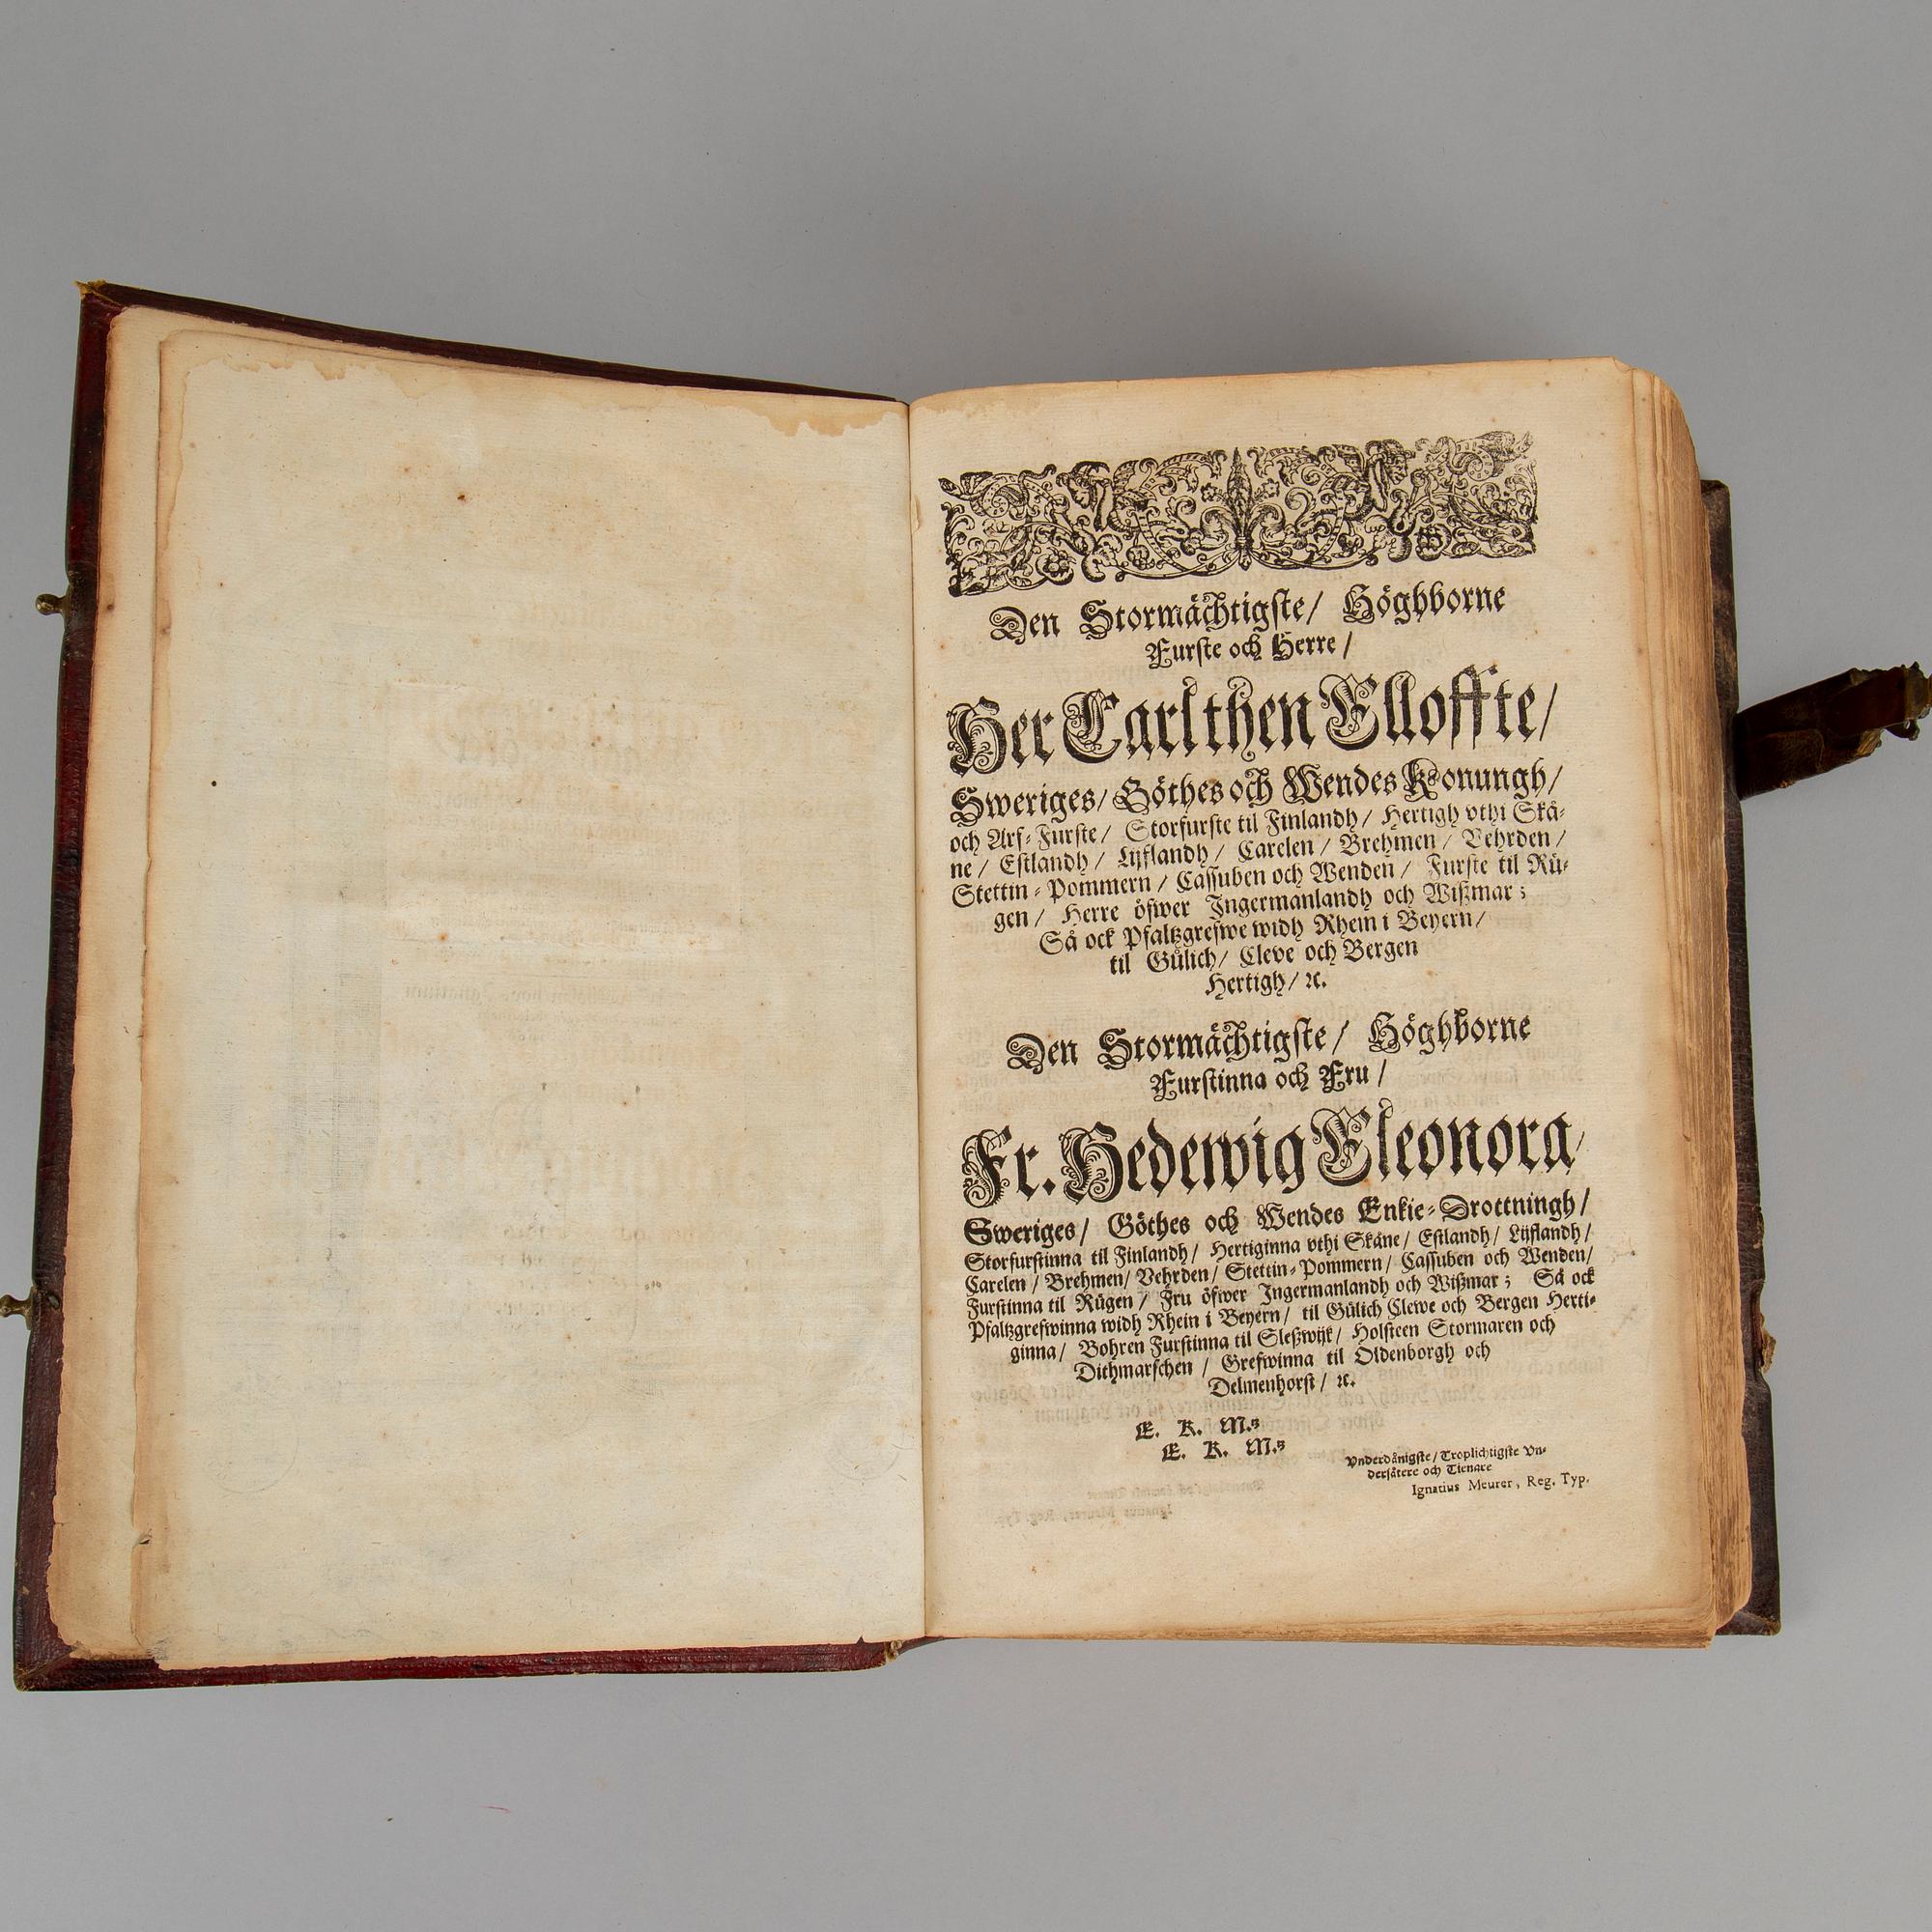 Den Stormächtigste/ Höghborne
Furste och Herre/
Her Carl then Elloffte/
Sweriges/ Göthes och Wendes Konungh/
och Arf-Furste/ Storfurste til Finlandh/ Hertigh vthi Skå-
ne/ Estlandh/ Lijflandh/ Carelen/ Brehmen/ Vehrden/
Stettin-Pommern/ Cassuben och Wenden/ Furste til Rü-
gen/ Herre öfwer Ingermanlandh och Wißmar;
Så ock Pfaltzgrefwe widh Rhein i Beyern/
til Gülich/ Cleve och Bergen
Hertigh/ ꝛc.
Den Stormächtigste/ Höghborne
Furstinna och Fru/
Fr. Hedewig Eleonora/
Sweriges/ Göthes och Wendes Enkie-Drottningh/
Storfurstinna til Finlandh/ Hertiginna vthi Skåne/ Estlandh/ Lijflandh/
Carelen/ Brehmen/ Vehrden/ Stettin-Pommern/ Cassuben och Wenden/
Furstinna til Rügen/ Fru öfwer Ingermanlandh och Wißmar; Så ock
Pfaltzgrefwinna widh Rhein i Beyern/ til Gülich Clewe och Bergen Herti-
ginna/ Bohren Furstinna til Sleßwijk/ Holsteen Stormaren och
Dithmarschen/ Grefwinna til Oldenborgh och
Delmenhorst/ ꝛc.
E. K. M.tz
E. K. M.tz
Vnderdånigste/ Troplichtigste Vn-
dersåtere och Tienare
Ignatius Meurer, Reg. Typ.